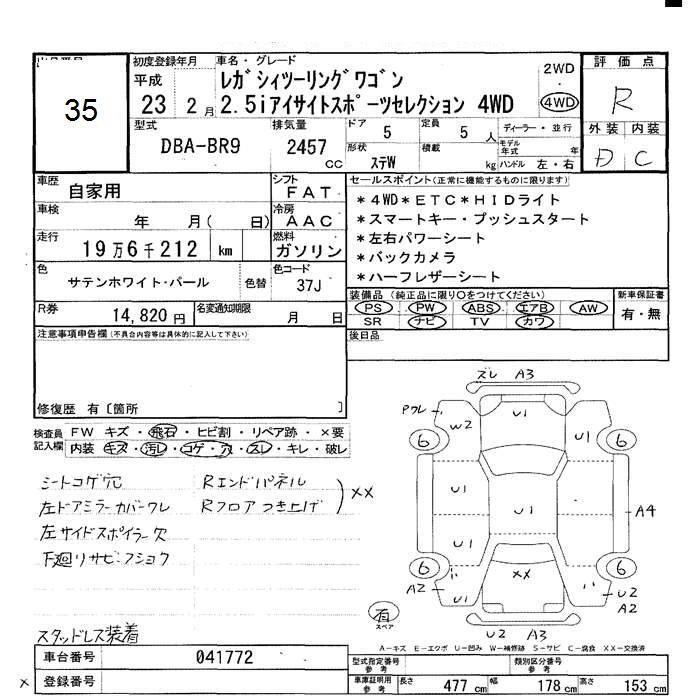 35
初度登録年月
平成
23 2月
車名・グレード
レガシィツーリングワゴン
2.5iアイサイトスポーツセレクション 4WD
2WD
4WD
評価点
R
外装 内装
D C
型式
DBA-BR9
排気量
2457 cc
ドア 5
定員 5 人
形状 ステW
積載 kg
ディーラー・並行
モデル年式 年
ハンドル 左・右
車歴 自家用
シフト FAT
車検 年 月( 日)
冷房 AAC
走行 19万6千212 km
燃料 ガソリン
色 サテンホワイト・パール 色替
色コード 37J
R券 14,820円
名変通知期限 月 日
セールスポイント(正常に機能するものに限ります)
*4WD*ETC*HIDライト
*スマートキー・プッシュスタート
*左右パワーシート
*バックカメラ
*ハーフレザーシート
装備品(純正品に限り○をつけてください)
PS PW ABS エアB AW
SR ナビ TV カワ
新車保証書
有・無
後日品
注意事項申告欄(不具合内容等は具体的に記入して下さい)
修復歴 有〔箇所 〕
検査員記入欄
FW キズ・飛石・ヒビ割・リペア跡・×要
内装 キズ・汚レ・コゲ・穴・スレ・キレ・破レ
シートコゲ穴
左ドアミラーカバーワレ
左サイドスポイラー欠
下廻りサビ・フショク
Rエンドパネル
Rフロアつき上げ
××
スタッドレス装着
ズレ A3
Pワレ
W2
U1
U1
6
6
U1
U1
U1
A4
6
6
××
A2
U1
U2
A2
有
スペア
U2 A3
A-キズ E-エクボ U-凹み W-補修跡 S-サビ C-腐食 XX-交換済
車台番号 041772
× 登録番号
型式指定番号
参考
類別区分番号
参考
車庫証明用
参考
長さ 477 cm
幅 178 cm
高さ 153 cm